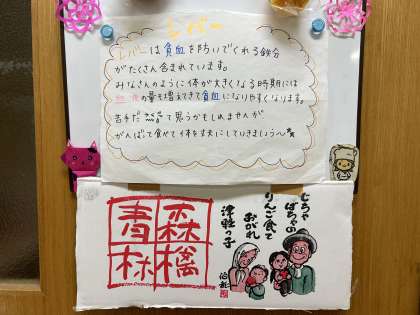 レバー
レバーは貧血を防いでくれる鉄分
がたくさん含まれています。
みなさんのように体が大きくなる時期には
血液の量も増えてきて貧血になりやすくなります。
苦手だなぁって思うかもしれませんが
がんばって食べて体を丈夫にしていきましょう〜
じっちゃ
ばっちゃの
りんご食て
おがれ
津軽っ子
青森
林檎